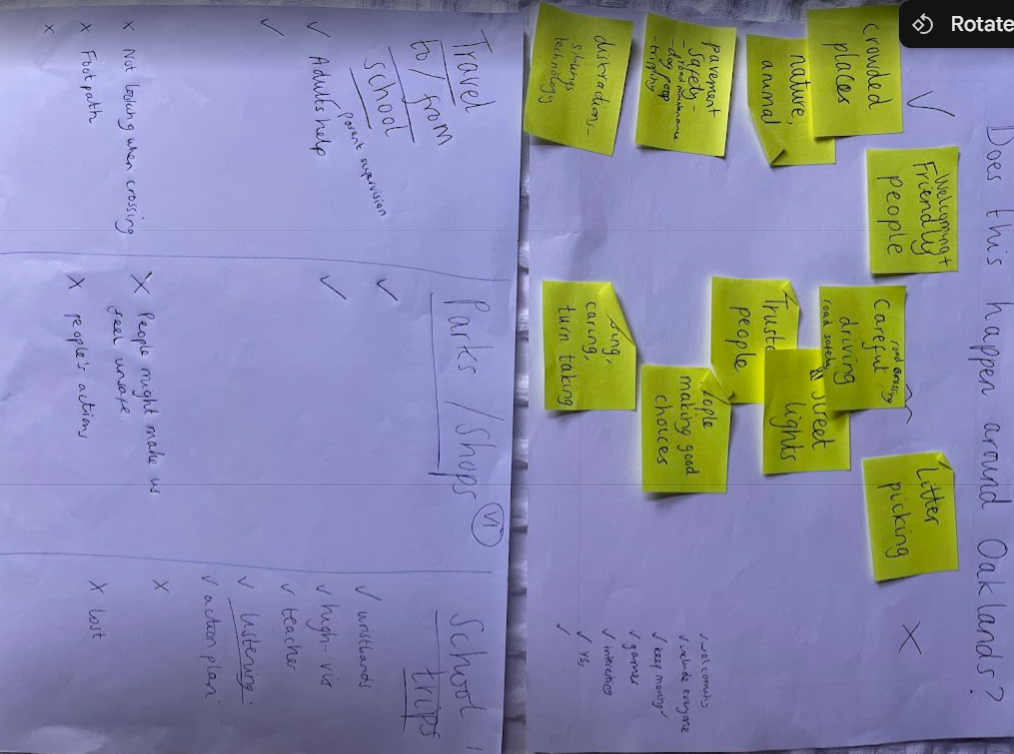 Rotate
Does this happen around Oaklands?
✓
X
crowded
places
nature,
animal
pavement
safety -
- road maintenance
- dog poop
- tripping
distractions -
siblings
technology
Welcoming +
Friendly
people
road crossing
Careful
driving
road safety
Street
lights
people
people
making good
choices
caring,
turn taking
Litter
picking
✓ include everyone
✓ keep moving
✓ games
✓
✓ Yr5
✓
Travel
to/from
school
parent supervision
✓ Adults help
✓
x Not looking when crossing
x Footpath,
x
Parks / Shops
✓
✓
X People might make us
feel unsafe
X people's actions
V1
School
trips
✓ wristbands
✓ high-vis
✓ teacher
✓ listening
✓ action plan
X
X lost